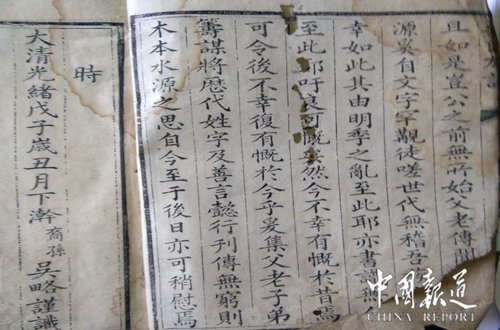 且如是豈公之前無所始父老傳聞
源吳自文字罕覯徒嗟世代無稽吾
幸如此其由明季之亂至此耶亦書
至此耶吁良可慨矣然今不幸有慨於昔焉
可令後不幸復有慨於今乎爰集父老子弟
籌謀將歷代姓字及善言懿行刊傳無窮則
木本水源之思自今至于後日亦可稍慰焉
時
大清光緒戊子歲丑月下澣裔孫吳略謹識
中國報道
CHINA REPORT